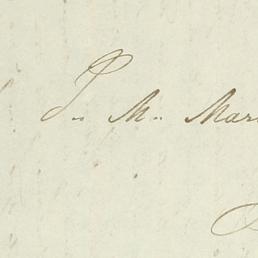 J. M. Mar